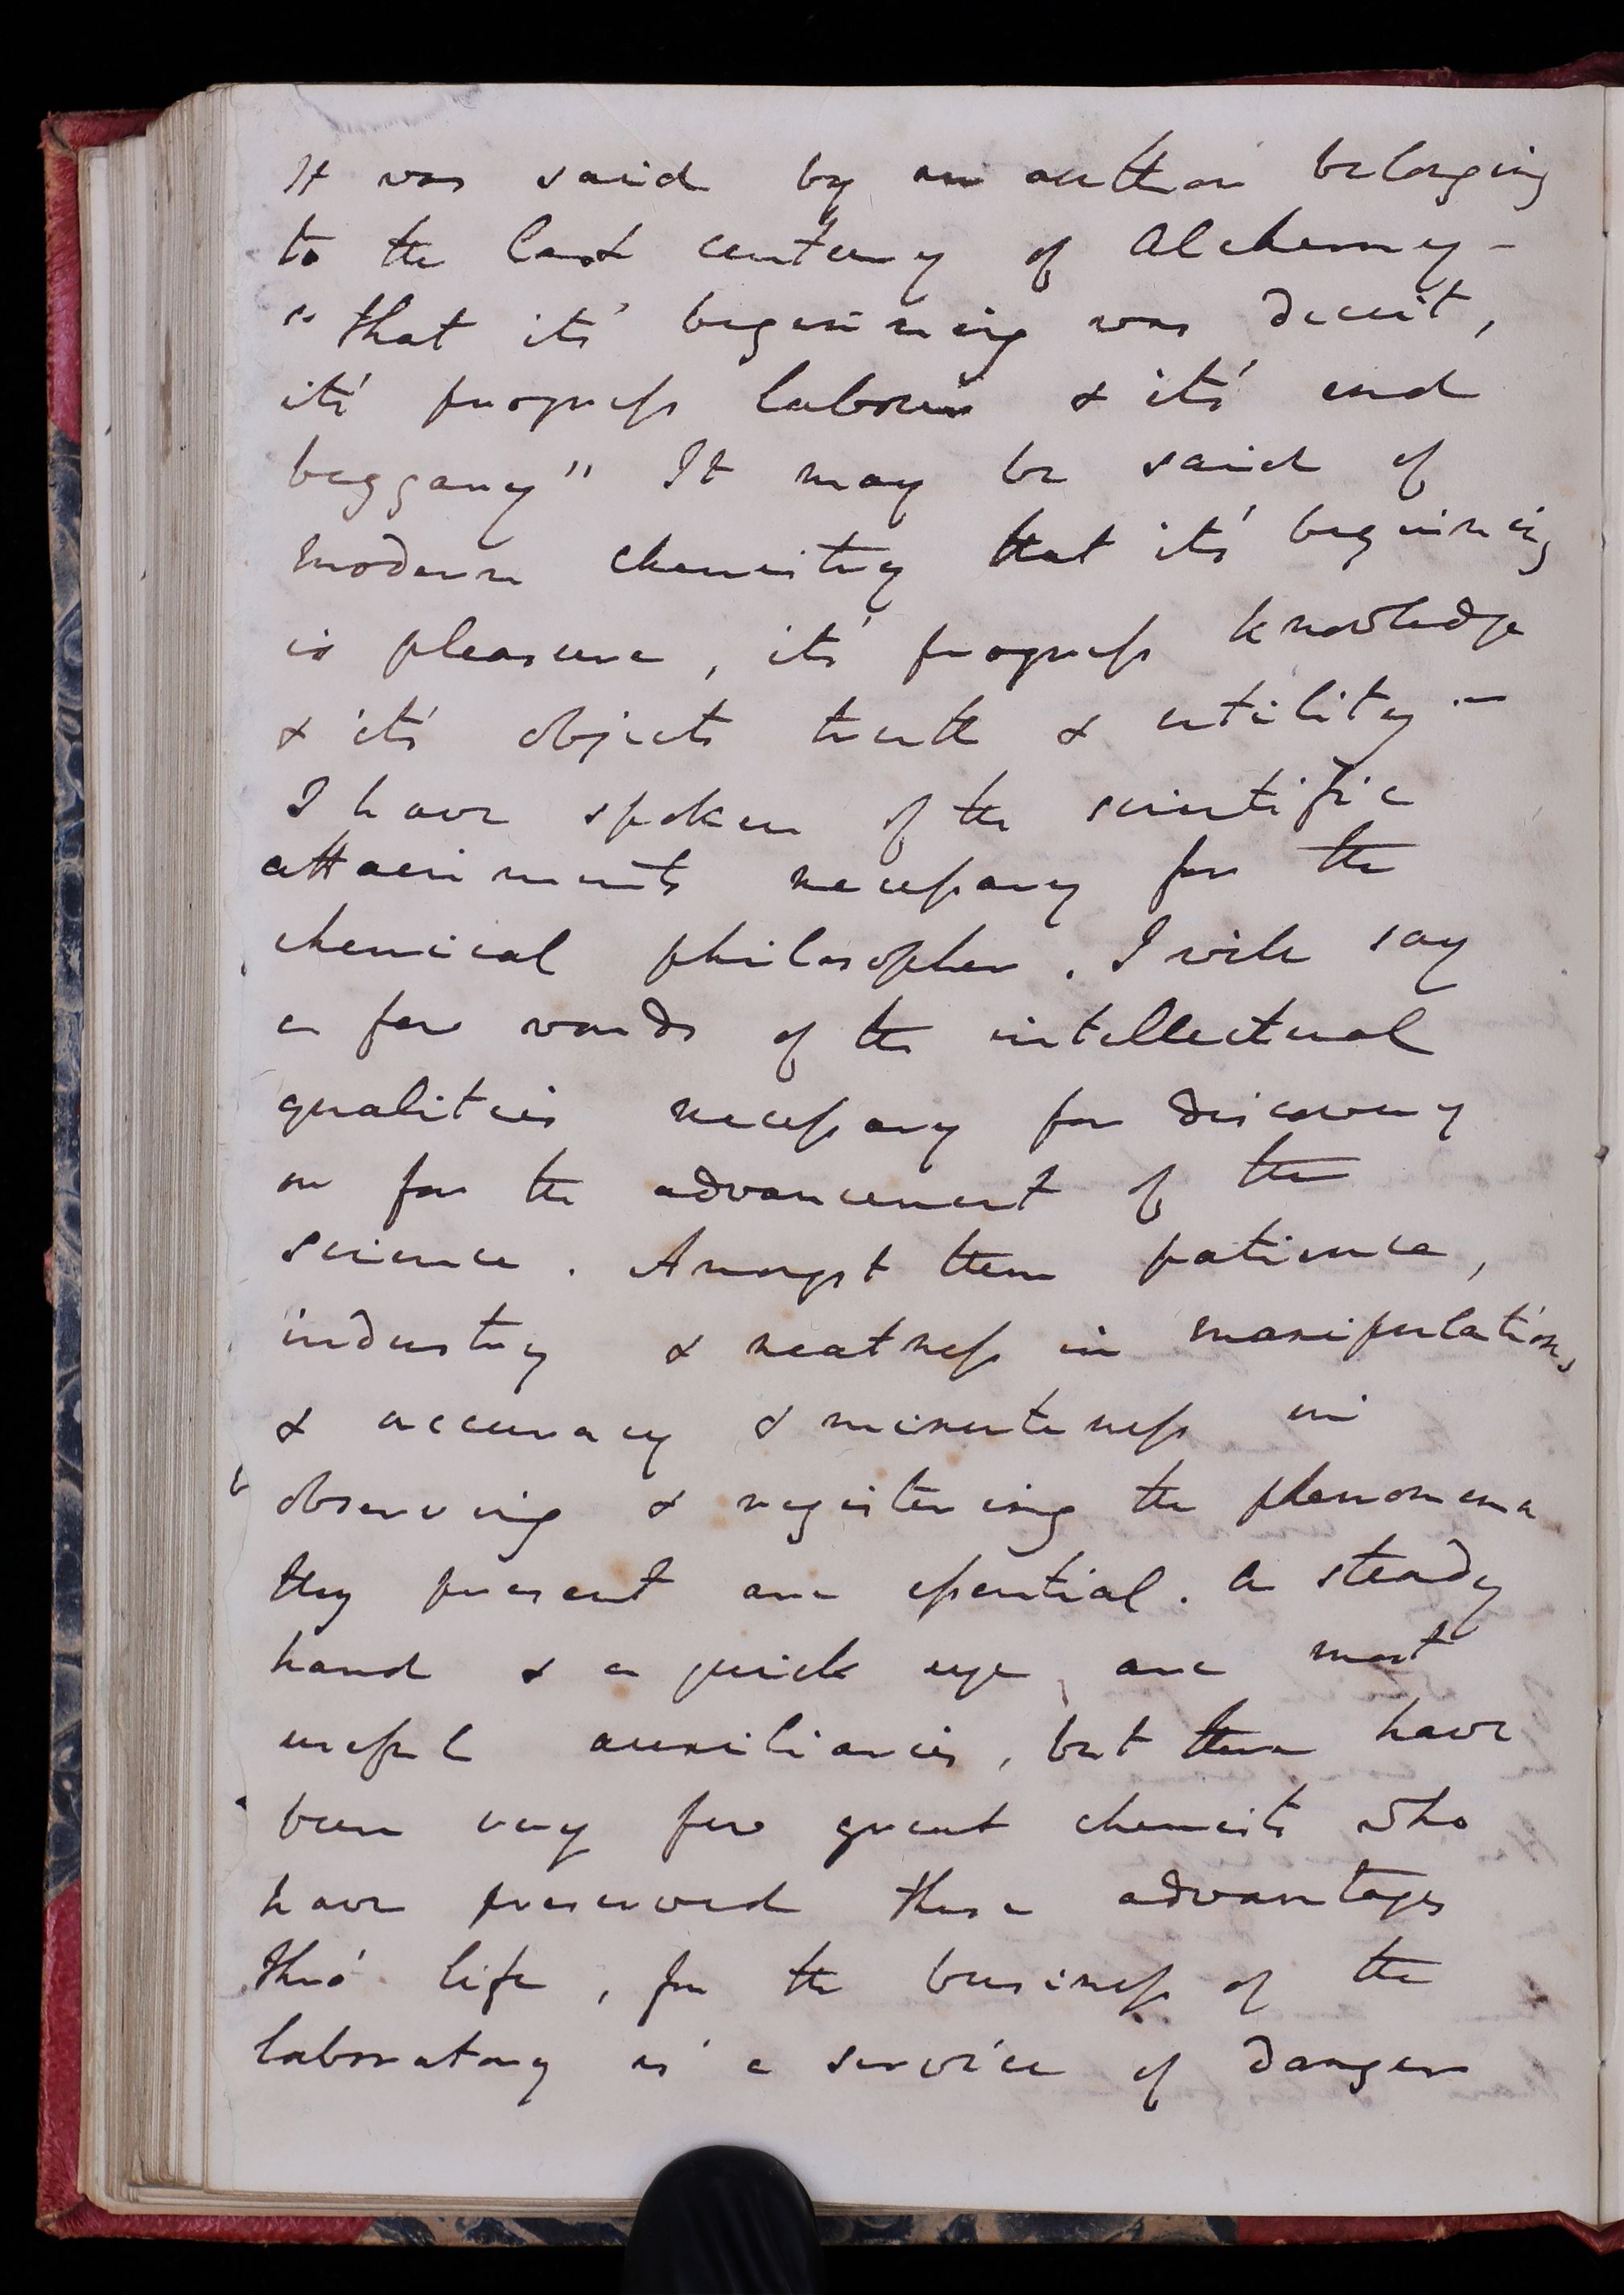 It was said by an author belonging
to the last century of Alchemy -
"that its' beginning was deceit,
its' progress labour & its' end
beggary" It may be said of
modern chemistry that its' beginning
is pleasure, its' progress knowledge
& its' objects truth & utility -
I have spoken of the scientific
attainments necessary for the
chemical philosopher. I will say
a few words of the intellectual
qualities necessary for discovery
or for the advancement of the
science. Amongst them patience,
industry & neatness in manipulation,
& accuracy & minuteness in
observing & registering the phenomena
they present are essential. a steady
hand & a quick eye are most
useful auxiliaries, but there have
been very few great chemists who
have preserved these advantages
thro' life, for the business of the
laboratory is a service of danger